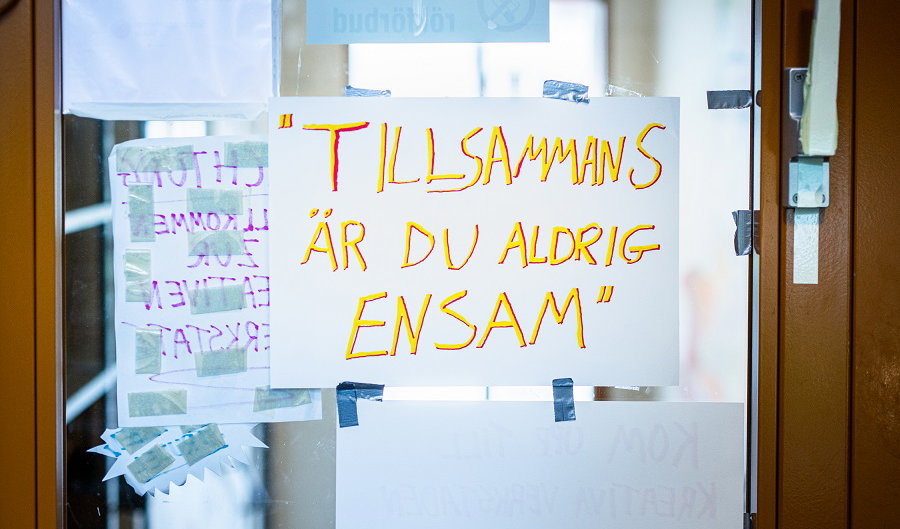 rökförbud
"TILLSAMMANS
ÄR DU ALDRIG
ENSAM"
CHTUNG
LLKOMMEN
ZUR
EATIVEN
ERKSTAT
KOM TILL
KREATIVA VERKSTADEN